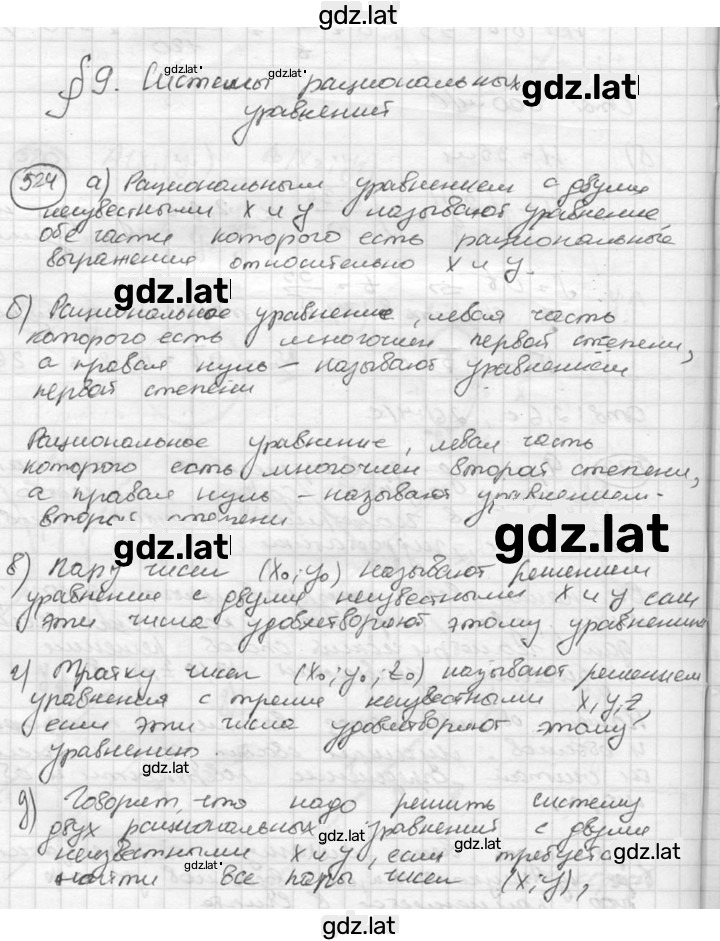 gdz.lat
gdz.lat gdz.lat
§9. Системы рациональных gdz.lat
уравнений
524 а) Рациональным уравнением с двумя
неизвестными x и y называют уравнение,
обе части которого есть рациональные
выражения относительно x и y.
gdz.lat
б) Рациональное уравнение, левая часть
которого есть многочлен первой степени,
а правая нуль – называют уравнением
первой степени
Рациональное уравнение, левая часть
которого есть многочлен второй степени,
а правая нуль – называют уравнением
второй степени
gdz.lat gdz.lat
в) Пару чисел (x₀; y₀) называют решением
уравнения с двумя неизвестными x и y если
эти числа удовлетворяют этому уравнению
г) Тройку чисел (x₀; y₀; z₀) называют решением
уравнения с тремя неизвестными x, y, z,
если эти числа удовлетворяют этому
уравнению.
gdz.lat
д) Говорят, что надо решить систему
двух рациональных уравнений с двумя
gdz.lat
неизвестными x и y, если требуется
gdz.lat
найти все пары чисел (x; y),
gdz.lat